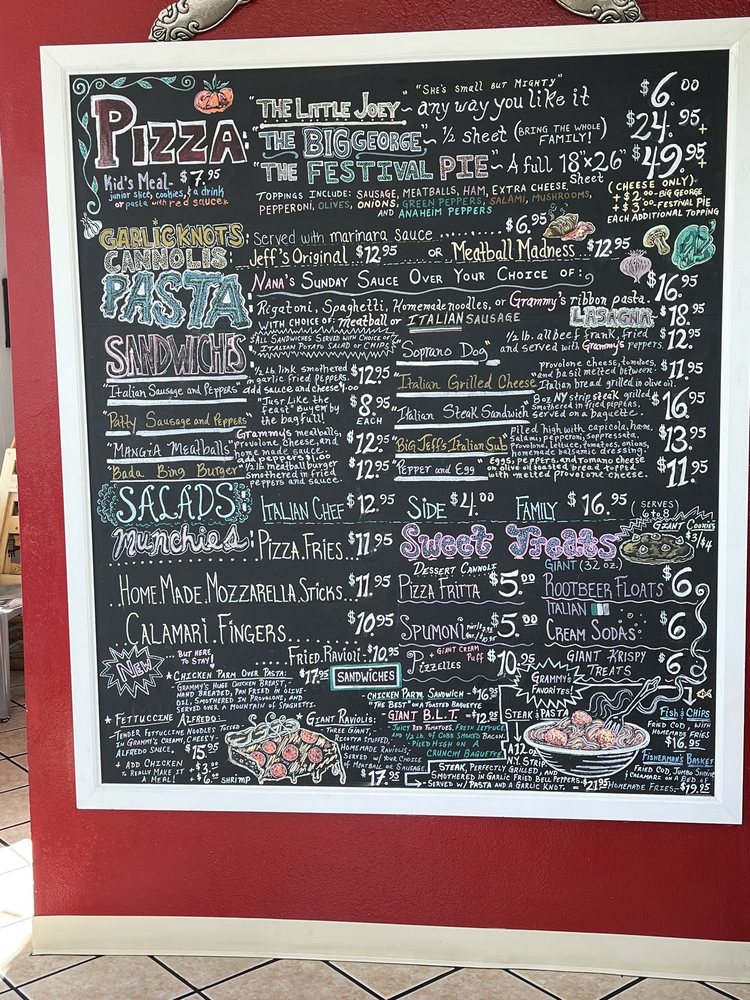 PIZZA:
Kid's Meal- $7.95
junior slice, cookies, & a drink
or pasta with red sauce
"She's small but mighty"
"THE LITTLE JOEY" ~ any way you like it $6.00
"THE BIG GEORGE" ~ 1/2 sheet (BRING THE WHOLE FAMILY!) $24.95+
"THE FESTIVAL PIE" ~ A full 18"x26" Sheet $49.95+
TOPPINGS INCLUDE: SAUSAGE, MEATBALLS, HAM, EXTRA CHEESE,
PEPPERONI, OLIVES, ONIONS, GREEN PEPPERS, SALAMI, MUSHROOMS,
AND ANAHEIM PEPPERS
(CHEESE ONLY)
+ $2.00-BIG GEORGE
+ $3.00-FESTIVAL PIE
EACH ADDITIONAL TOPPING
GARLIC KNOTS: Served with marinara sauce ........ $6.95
CANNOLIS: Jeff's Original $12.95 OR Meatball Madness $12.95
PASTA: NANA'S SUNDAY SAUCE OVER YOUR CHOICE OF:
Rigatoni, Spaghetti, Homemade noodles, or Grammy's ribbon pasta. $16.95
WITH CHOICE OF: meatball or ITALIAN SAUSAGE
LASAGNA $18.95
SANDWICHES
ALL SANDWICHES SERVED WITH CHOICE OF
ITALIAN POTATO SALAD OR CHIPS
"Italian Sausage and Peppers"
1/2 lb. link smothered
in garlic fried peppers.
add sauce and cheese $1.00
$12.95
"Patty Sausage and Peppers"
"Just like the
feast" Buy em by
the bag full!
$8.95 EACH
"MANGIA Meatballs"
Grammy's meatballs,
provolone cheese, and
home made sauce
add peppers $1.00
$12.95
"Bada Bing Burger"
1/2 lb meatball burger
smothered in fried
peppers and sauce.
$12.95
"Soprano Dog"
1/2 lb. all beef frank, fried
and served with Grammy's peppers
$12.95
"Italian Grilled Cheese"
provolone cheese, tomatoes,
and basil melted between
Italian bread grilled in olive oil.
$11.95
"Italian Steak Sandwich"
8 oz NY strip steak grilled
smothered in fried peppers,
served on a baguette.
$16.95
"Big Jeff's Italian Sub"
piled high with capicola, ham,
salami, pepperoni, soppressata,
provolone, lettuce, tomatoes, onions,
homemade balsamic dressing.
$13.95
"Pepper and Egg"
Eggs, peppers, and romano cheese
on olive oil toasted bread topped
with melted provolone cheese.
$11.95
SALADS: ITALIAN CHEF $12.95 SIDE $4.00 FAMILY $16.95 (SERVES 6 to 8)
munchies: PIZZA.FRIES.. $11.95
HOME.MADE.MOZZARELLA.STICKS. $11.95
CALAMARI.FINGERS...... $10.95
FRIED.RAVIOLI- $10.95
Sweet Treats
GIANT COOKIES
$3/$4
DESSERT CANNOLI
PIZZA FRITTA $5.00
SPUMONI $5.00
PIZZELLES + GIANT CREAM PUFF $10.95
GIANT (32 OZ.)
ROOTBEER FLOATS $6
ITALIAN
CREAM SODAS $6
GIANT KRISPY
TREATS $6
NEW
...BUT HERE
TO STAY!
★ CHICKEN PARM OVER PASTA: $17.95
GRAMMY'S HUGE CHICKEN BREAST,
HAND BREADED, PAN FRIED IN OLIVE
OIL, SMOTHERED IN PROVOLONE, AND
SERVED OVER A MOUNTAIN OF SPAGHETTI.
★ FETTUCCINE ALFREDO:
TENDER FETTUCCINE NOODLES TOSSED
IN GRAMMY'S CREAMY, CHEESY
ALFREDO SAUCE.
$15.95
+ ADD CHICKEN + $3.00
TO REALLY MAKE IT
A MEAL! + $6.00 SHRIMP
GIANT RAVIOLIS:
THREE GIANT,
RICOTTA STUFFED,
HOMEMADE RAVIOLIS,
SERVED W/ YOUR CHOICE
OF MEATBALL OR SAUSAGE
$17.95
SANDWICHES
- CHICKEN PARM SANDWICH - $16.95
"THE BEST" ON A TOASTED BAGUETTE
GIANT B.L.T. - $12.95
JUICY RED TOMATOES, FRESH LETTUCE,
AND 1/2 LB OF COBB SMOKED BACON,
PILED HIGH ON A
CRUNCHY BAGUETTE
GRAMMY'S
FAVORITES!
STEAK & PASTA
A 12 OZ
N.Y. STRIP
STEAK, PERFECTLY GRILLED, AND
SMOTHERED IN GARLIC FRIED BELL PEPPERS.
- SERVED W/ PASTA AND A GARLIC KNOT. - $21.95
FISH & CHIPS
FRIED COD, WITH
HOMEMADE FRIES
$16.95
FISHERMAN'S BASKET
FRIED COD, JUMBO SHRIMP
& CALAMARI ON A BED OF
HOMEMADE FRIES - $19.95